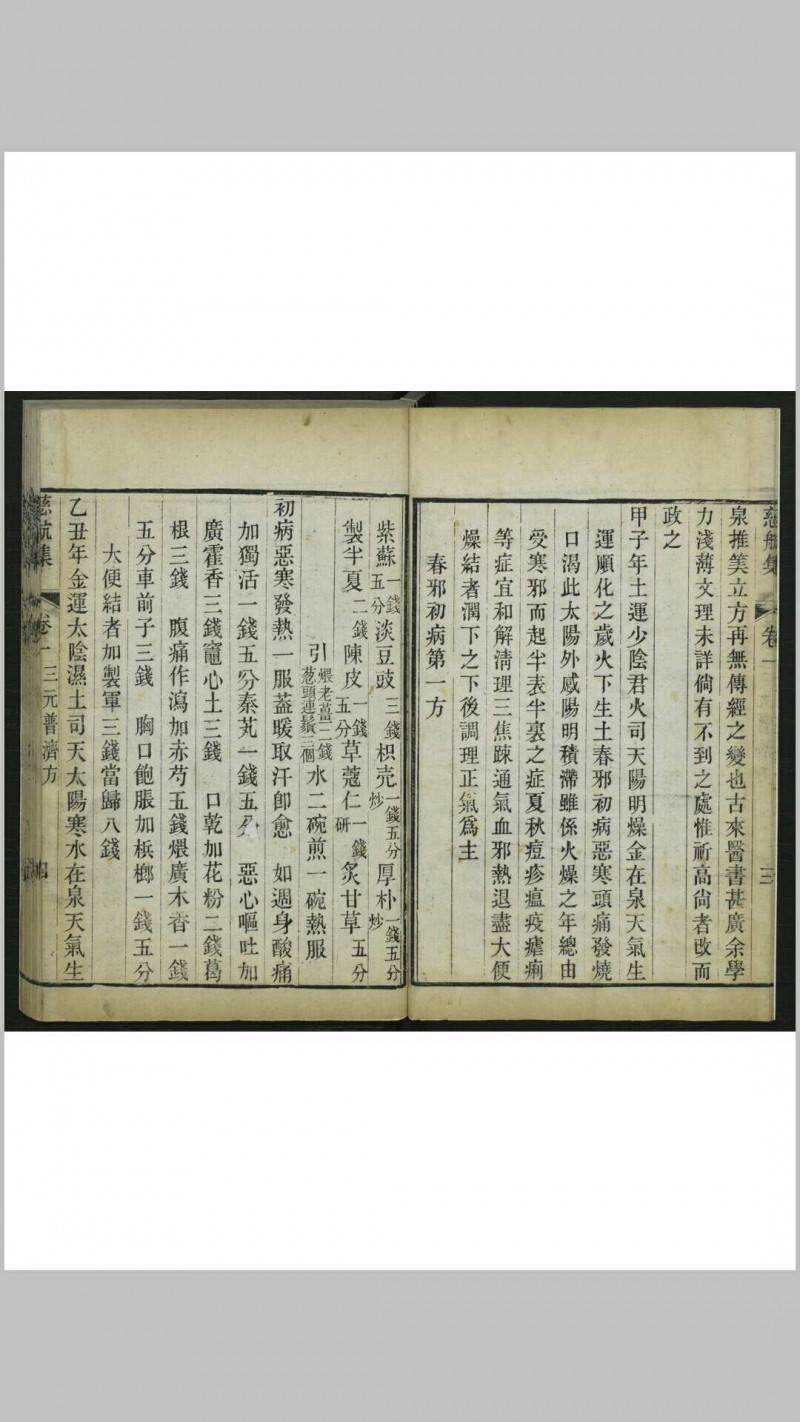 慈航集 卷一 三
泉推筭立方再無傳經之變也古來醫書甚廣余學
力淺薄文理未詳倘有不到之處惟祈高尙者改而
政之
甲子年土運少陰君火司天陽明燥金在泉天氣生
運順化之歲火下生土春邪初病惡寒頭痛發燒
口渴此太陽外感陽明積滯雖係火燥之年總由
受寒邪而起半表半裏之症夏秋痘疹瘟疫瘧痢
等症宜和解清理三焦踈通氣血邪熱退盡大便
燥結者潤下之下後調理正氣爲主
春邪初病第一方
紫蘇一錢五分淡豆豉三錢枳壳炒一錢五分厚朴炒一錢五分
製半夏二錢陳皮一錢五分草蔻仁研一錢炙甘草五分
引煨老薑二錢葱頭連鬚三個水二碗煎一碗熱服
初病惡寒發熱一服蓋暖取汗卽愈 如週身酸痛
加獨活一錢五分秦艽一錢五分 惡心嘔吐加
廣霍香三錢竈心土三錢 口乾加花粉二錢葛
根三錢 腹痛作瀉加赤芍五錢煨廣木香一錢
五分車前子三錢 胸口飽脹加梹榔一錢五分
大便結者加製軍三錢當歸八錢
乙丑年金運太陰濕土司天太陽寒水在泉天氣生
慈航集 卷一 三元普濟方 四